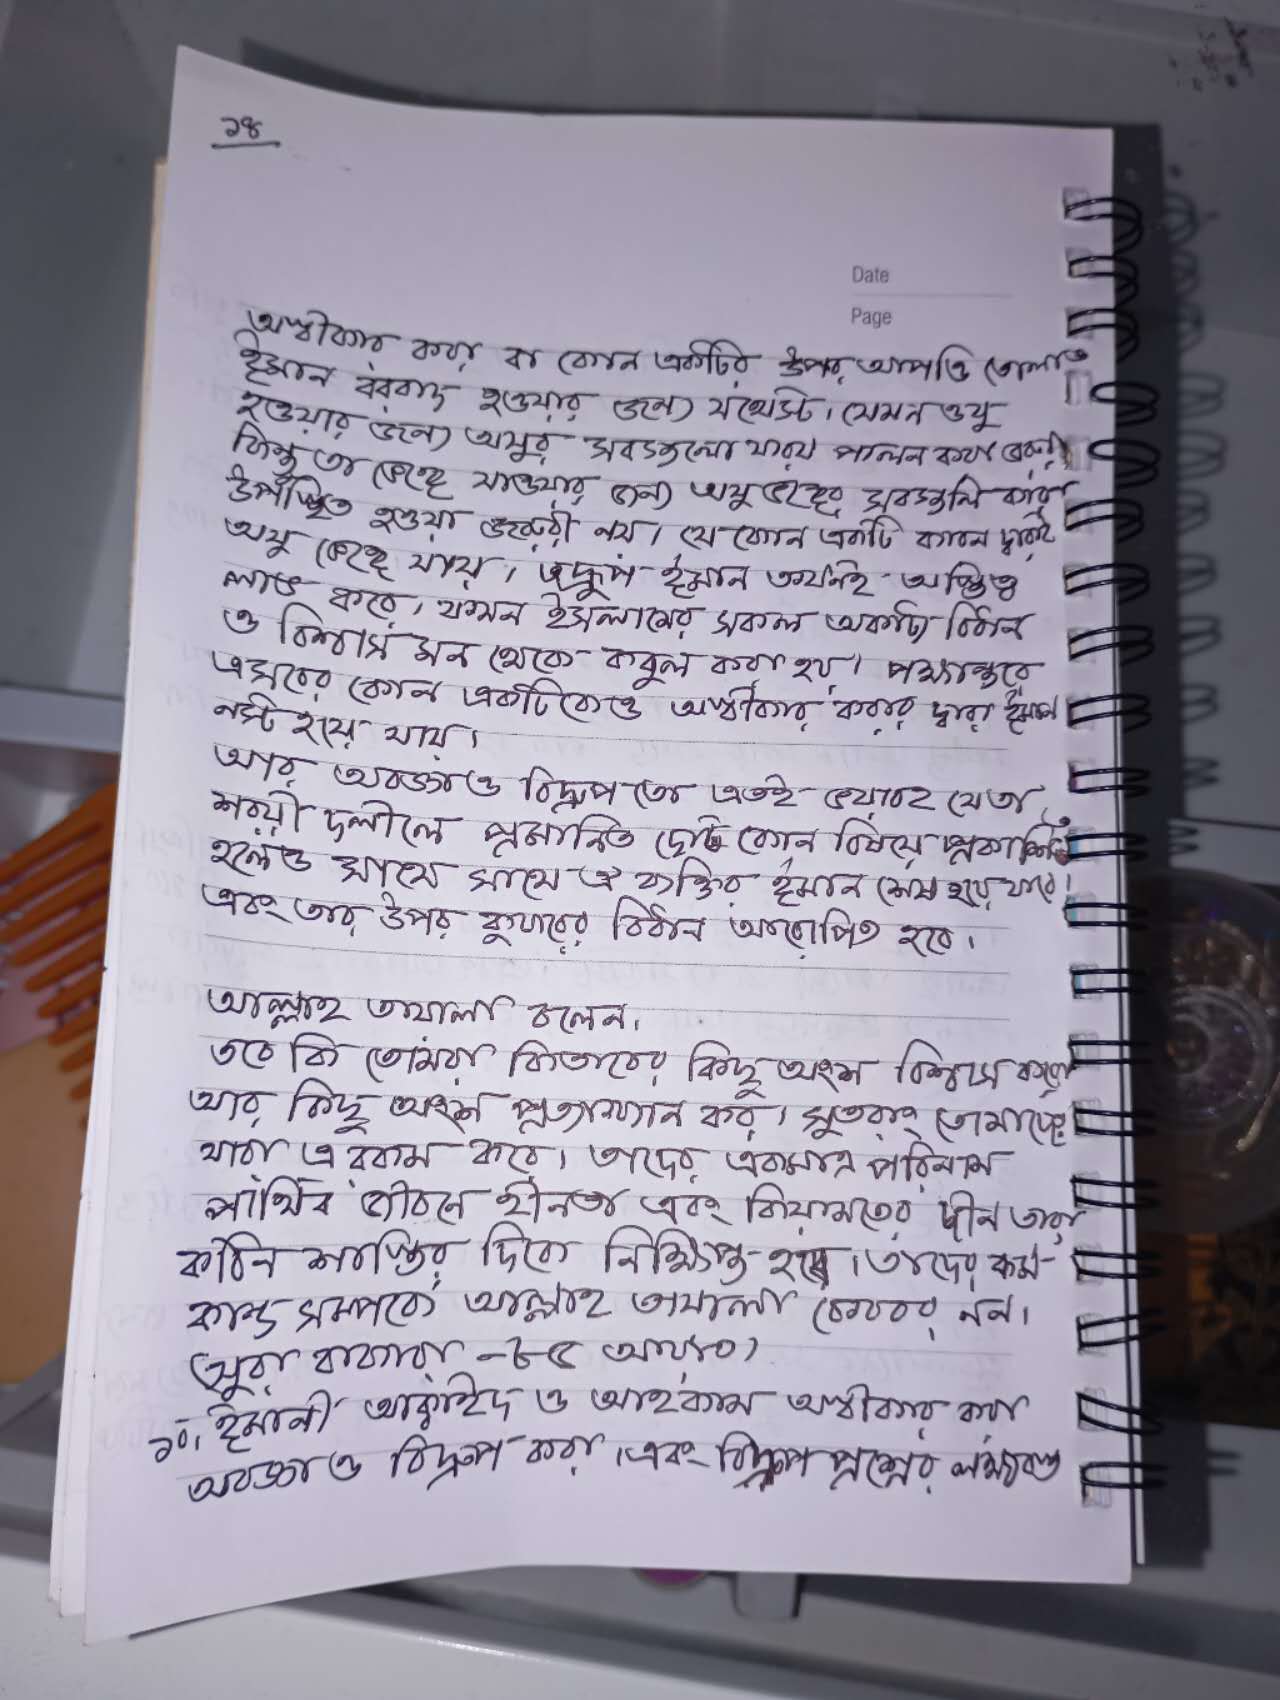 ১৪
Date
Page
অস্বীকার করা বা কোন একটির উপর আপত্তি তোলাও
ঈমান বরবাদ হওয়ার জন্যে যথেষ্ট। যেমন ওযু
হওয়ার জন্যে অযুর সবগুলো ফরয পালন করা জরুরী
কিন্তু তা ভেঙ্গে যাওয়ার জন্য অযু ভঙ্গের সবগুলি কারণ
উপস্থিত হওয়া জরুরী নয়। যে কোন একটি কারন দ্বারাই
অযু ভেঙ্গে যায়। তদ্রুপ ঈমান তখনই অস্তিত্ব
লাভ করে। যখন ইসলামের সকল অকাট্য বিধান
ও বিশ্বাস মন থেকে কবুল করা হয়। পক্ষান্তরে
এসবের কোন একটিকেও অস্বীকার করার দ্বারা ঈমান
নস্ট হয়ে যায়।
আর অবজ্ঞা ও বিদ্রুপ তো এতই ভয়াবহ যে তা
শরয়ী দলীলে প্রমানিত ছোট কোন বিষয়ে প্রকাশিত
হলেও সাথে সাথে ঐ ব্যক্তির ঈমান শেষ হয়ে যাবে।
এবং তার উপর কুফরের বিধান আরোপিত হবে।
আল্লাহ তায়ালা বলেন।
তবে কি তোমরা কিতাবের কিছু অংশ বিশ্বাস কর
আর কিছু অংশ প্রত্যাখ্যান কর। সুতরাং তোমাদের
যারা এ রকম করে। তাদের একমাত্র পরিনাম
পার্থিব জীবনে হীনতা এবং কিয়ামতের দ্বীন তারা
কঠিন শাস্তির দিকে নিক্ষিপ্ত হবে। তাদের কর্ম-
কান্ড সম্পর্কে আল্লাহ তায়ালা বেখবর নন।
(সুরা বাকারা -৮৫ আয়াত)
১০। ঈমানী আকাইদ ও আহকাম অস্বীকার করা
অবজ্ঞা ও বিদ্রুপ করা। এবং বিদ্রুপ প্রশ্নের লক্ষ্যবস্তু